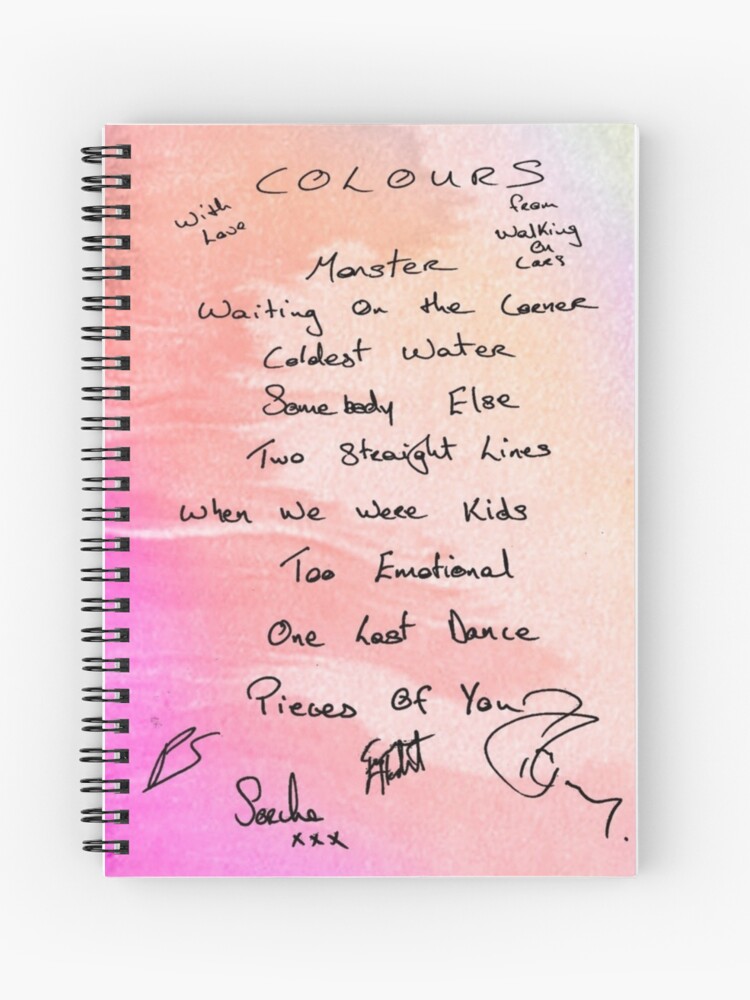 COLOURS
With
Love
from
Walking
On
Cars
Monster
Waiting On the Corner
Coldest Water
Somebody Else
Two Straight Lines
When We Were Kids
Too Emotional
One Last Dance
Pieces Of You
PS
Sorcha
xxx